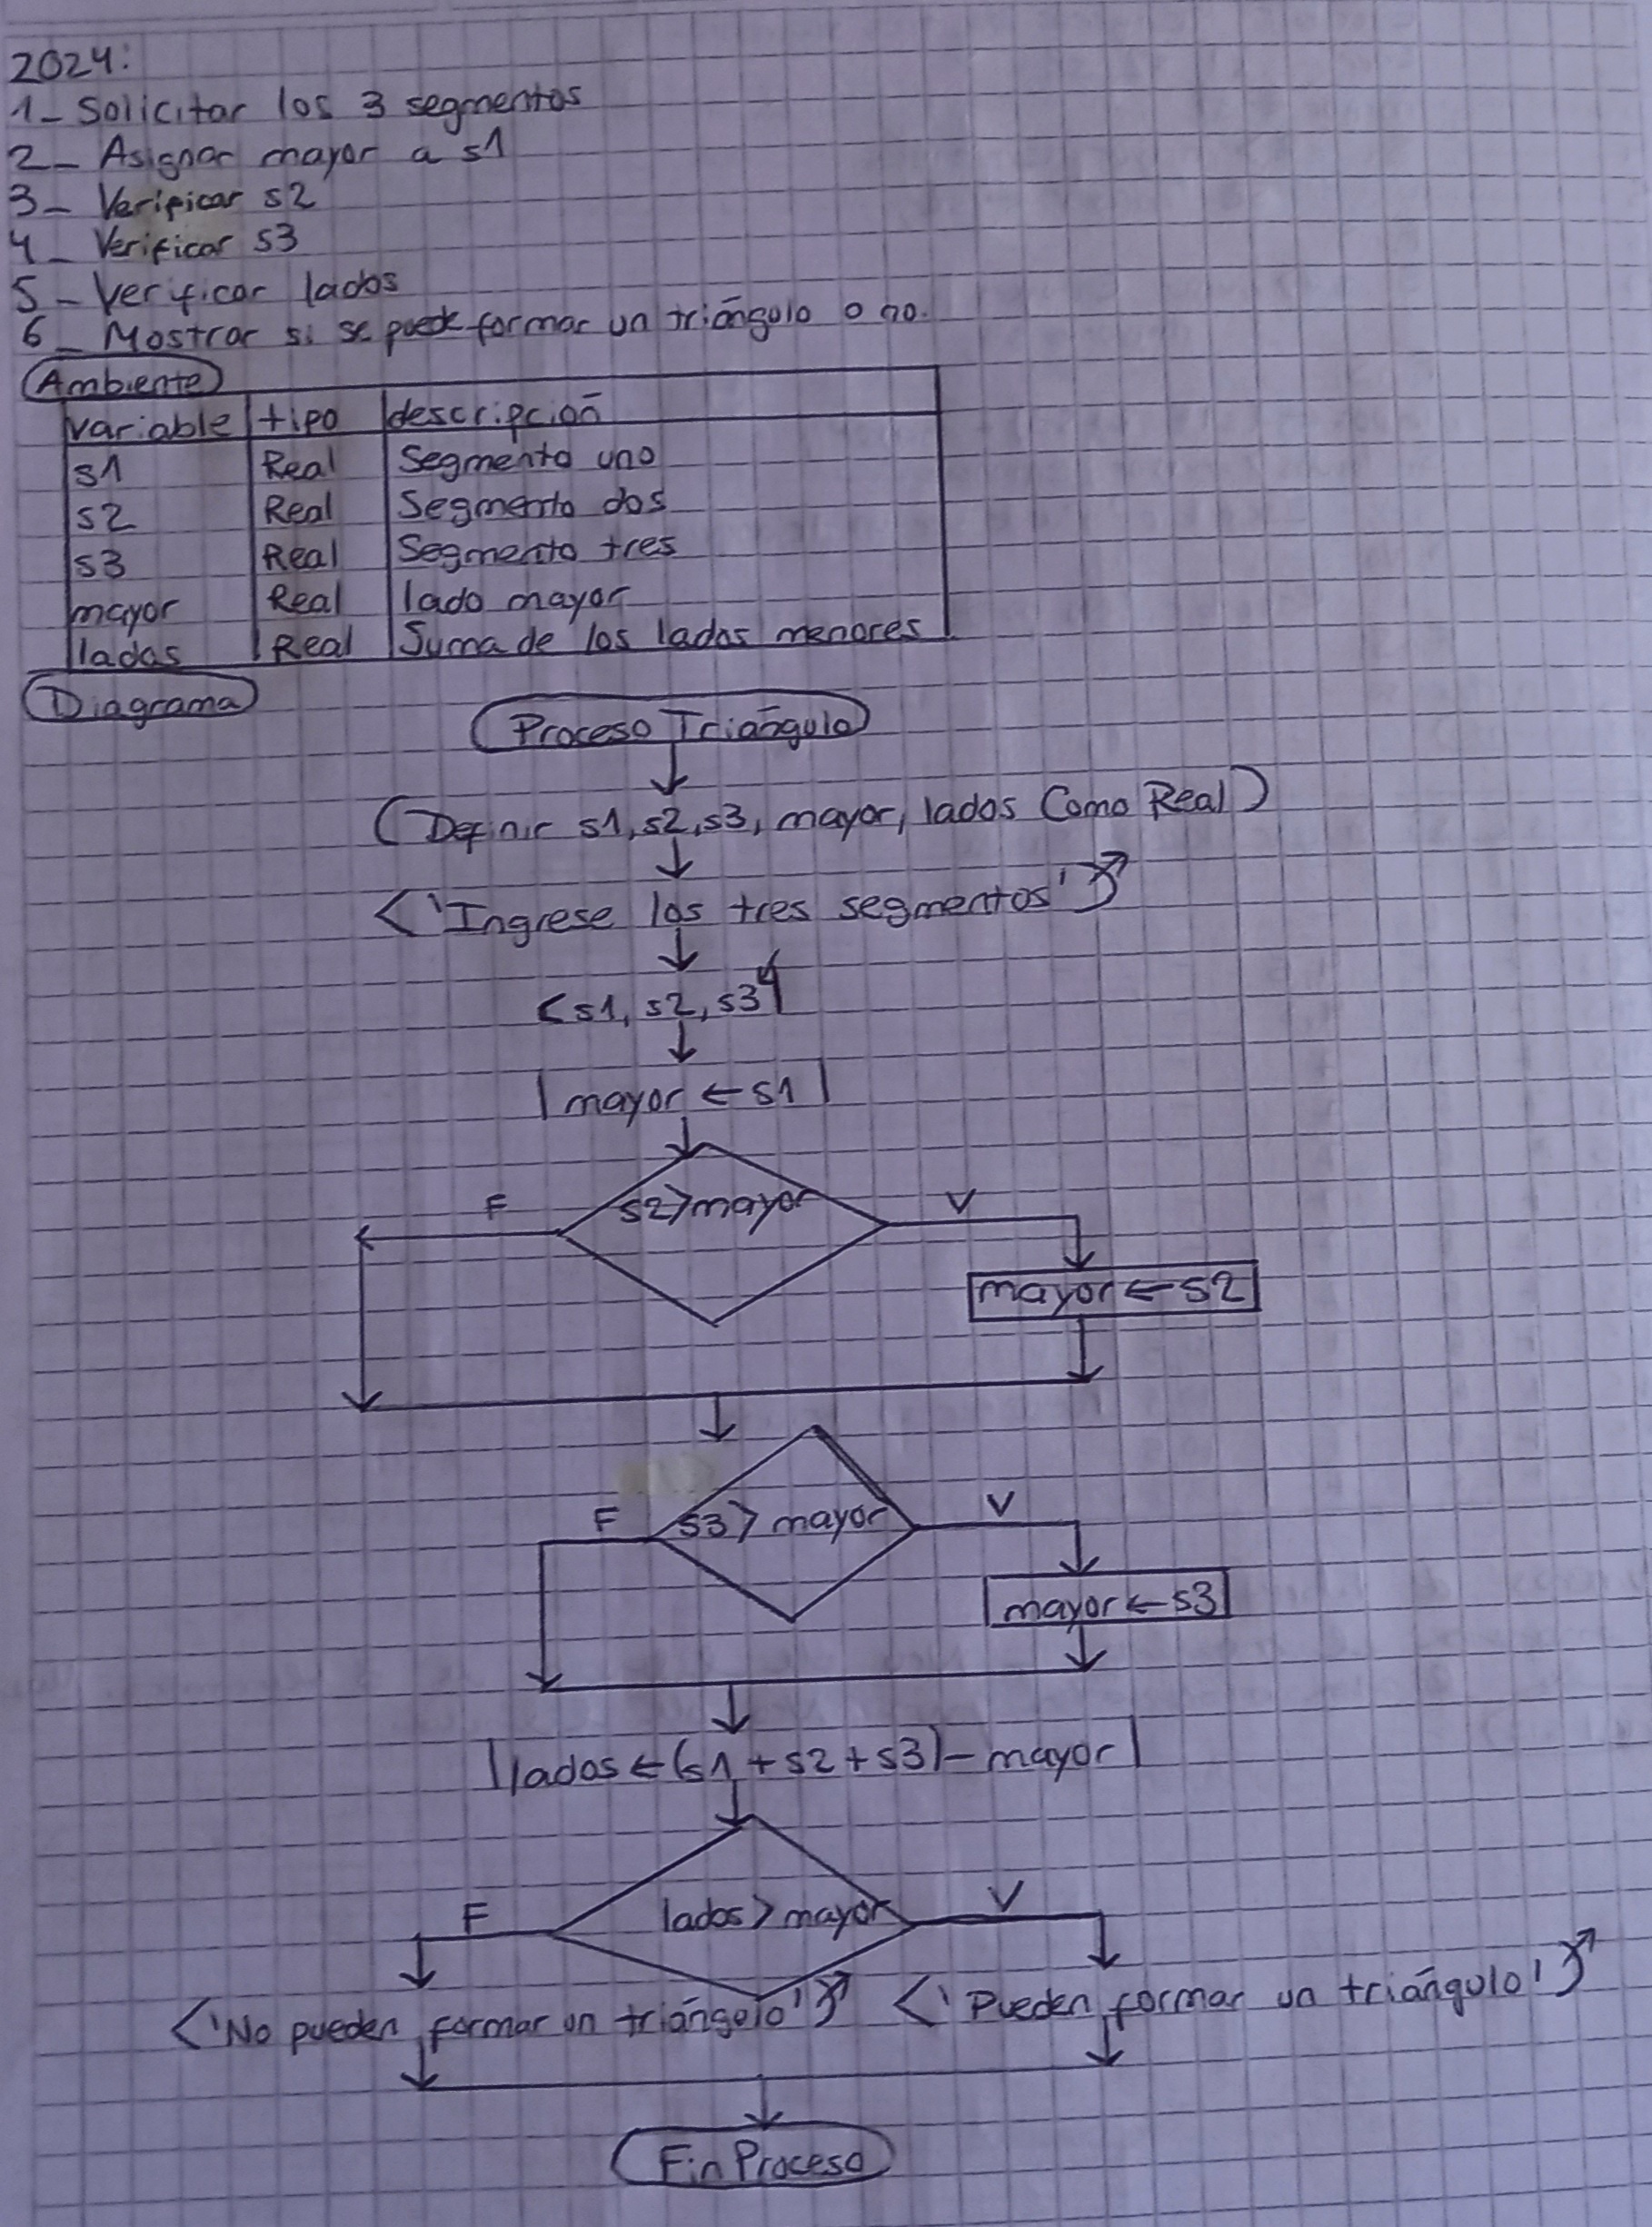 2024:
1_ Solicitar los 3 segmentos
2_ Asignar mayor a s1
3_ Verificar s2
4_ Verificar s3
5_ Verificar lados
6_ Mostrar si se puede formar un triángulo o no.
Ambiente
variable tipo descripción
s1 Real Segmento uno
s2 Real Segmento dos
s3 Real Segmento tres
mayor Real lado mayor
lados Real Suma de los lados menores
Diagrama
Proceso Triángulo
(Definir s1, s2, s3, mayor, lados Como Real)
<'Ingrese los tres segmentos'
<s1, s2, s3
| mayor ← s1 |
F s2>mayor V
mayor ← s2
F s3> mayor V
mayor ← s3
| lados ← (s1 + s2 + s3) - mayor |
F lados> mayor V
<'No pueden formar un triángulo' <'Pueden formar un triángulo'
Fin Proceso